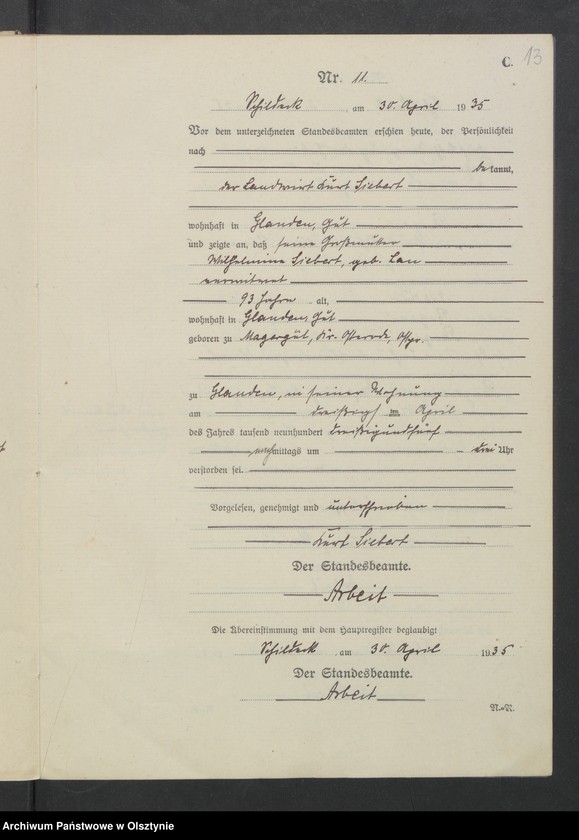 C. 13
Nr. 11.
Schildeck am 30. April 1935
Vor dem unterzeichneten Standesbeamten erschien heute, der Persönlichkeit
nach
bekannt,
der Landwirt Kurt Siebert
wohnhaft in Glanden, Gut
und zeigte an, daß seine Großmutter
Wilhelmine Siebert, geb. Lau
verwitwet
93 Jahre alt,
wohnhaft in Glanden, Gut
geboren zu Magergut, Kr. Osterode, Ostpr.
zu Glanden, in seiner Wohnung
am dreißigsten April
des Jahres tausend neunhundert dreißigundfünf
nachmittags um drei Uhr
verstorben sei.
Vorgelesen, genehmigt und unterschrieben
Kurt Siebert
Der Standesbeamte.
Arbeit
Die Übereinstimmung mit dem Hauptregister beglaubigt
Schildeck am 30. April 1935
Der Standesbeamte.
Arbeit
N.-N.
Archiwum Państwowe w Olsztynie